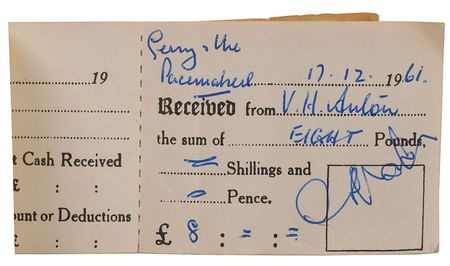 Gerry & the
Pacemakers
19
17.12. 1961.
Received from V. H. Anton
the sum of EIGHT Pounds,
t Cash Received
= Shillings and
£ : :
= Pence.
ount or Deductions
: :
£ 8 : = : =